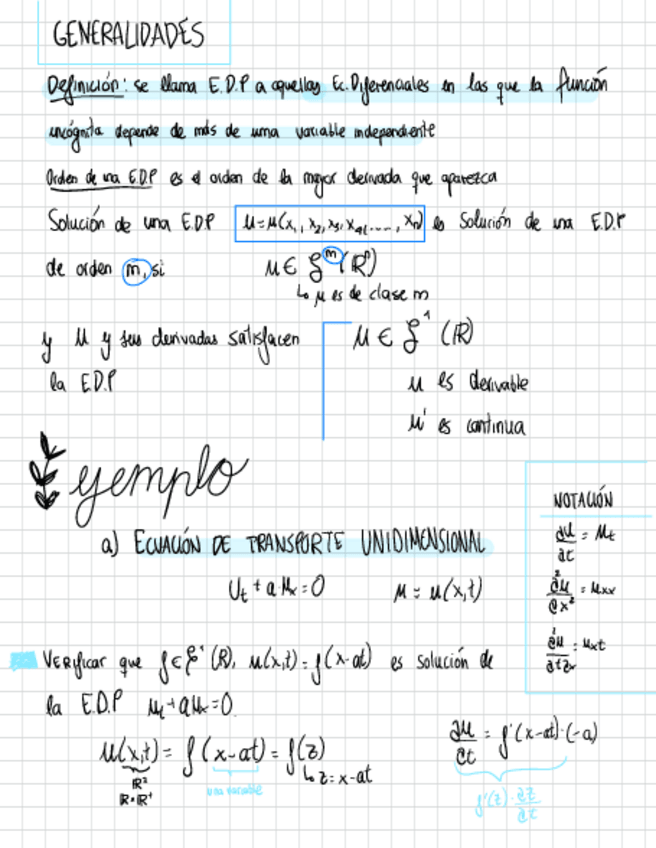 GENERALIDADES
Definición: se llama E.D.P a aquellas Ec. Diferenciales en las que la función
incógnita depende de más de una variable independiente
Orden de una E.D.P es el orden de la mayor derivada que aparezca
Solución de una E.D.P u=u(x₁, x₂, x₃, x₄, ...., xₙ) es Solución de una E.D.P
de orden m, si u ∈ ℰᵐ(ℝⁿ)
↳ u es de clase m
y u y sus derivadas satisfacen
la E.D.P
u ∈ ℰ¹ (ℝ)
u es derivable
u' es continua
Ejemplo
a) ECUACIÓN DE TRANSPORTE UNIDIMENSIONAL
Uₜ + a uₓ = 0 u = u(x,t)
NOTACIÓN
∂u/∂t = uₜ
∂²u/∂x² = uxx
∂²u/∂t∂x = uxt
VERIFICAR que f ∈ ℰ¹ (ℝ), u(x,t) = f(x-at) es solución de
la E.D.P uₜ + auₓ = 0
u(x,t) = f(x-at) = f(z)
↳ z = x-at
ℝ²
ℝ×ℝ⁺
una variable
∂u/∂t = f'(x-at)·(-a)
f'(z)·∂z/∂t